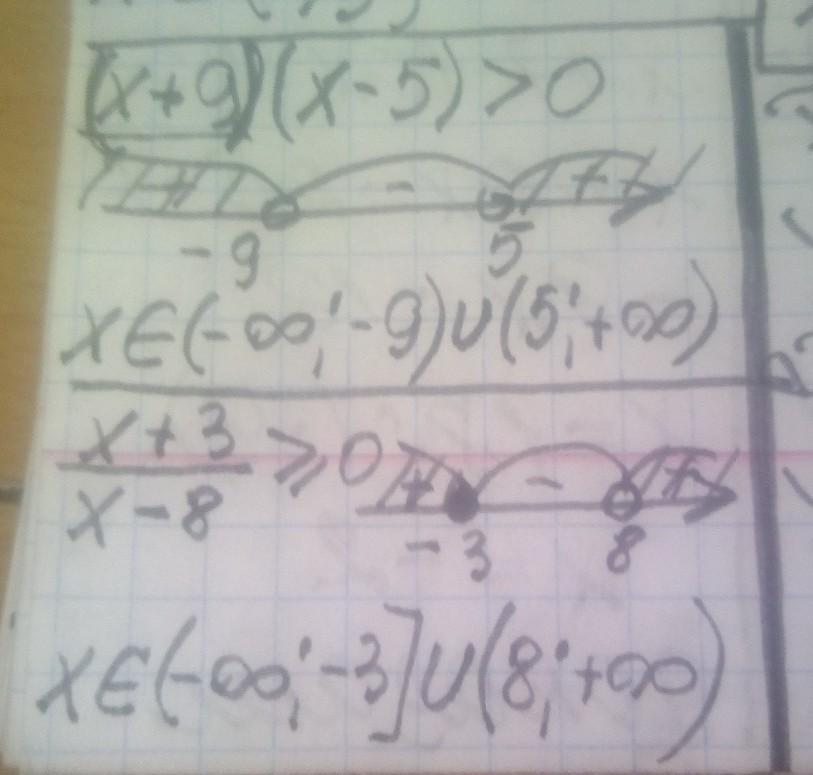 (x+9)(x-5)>0
+ - +
-9 5
x∈(-∞;-9)∪(5;+∞)
x+3
x-8
≥0
+ - +
-3 8
x∈(-∞;-3]∪(8;+∞)